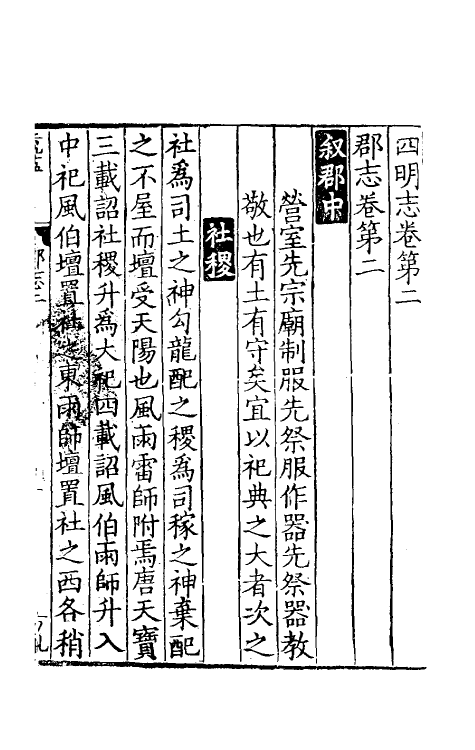 四明志卷第二
郡志卷第二
叙郡中
營室先宗廟制服先祭服作器先祭器教
敬也有土有守矣宜以祀典之大者次之
社稷
社爲司土之神勾龍配之稷爲司稼之神棄配
之不屋而壇受天陽也風雨雷師附焉唐天寶
三載詔社稷升爲大祀四載詔風伯雨師升入
中祀風伯壇置社之東雨師壇置社之西各稍